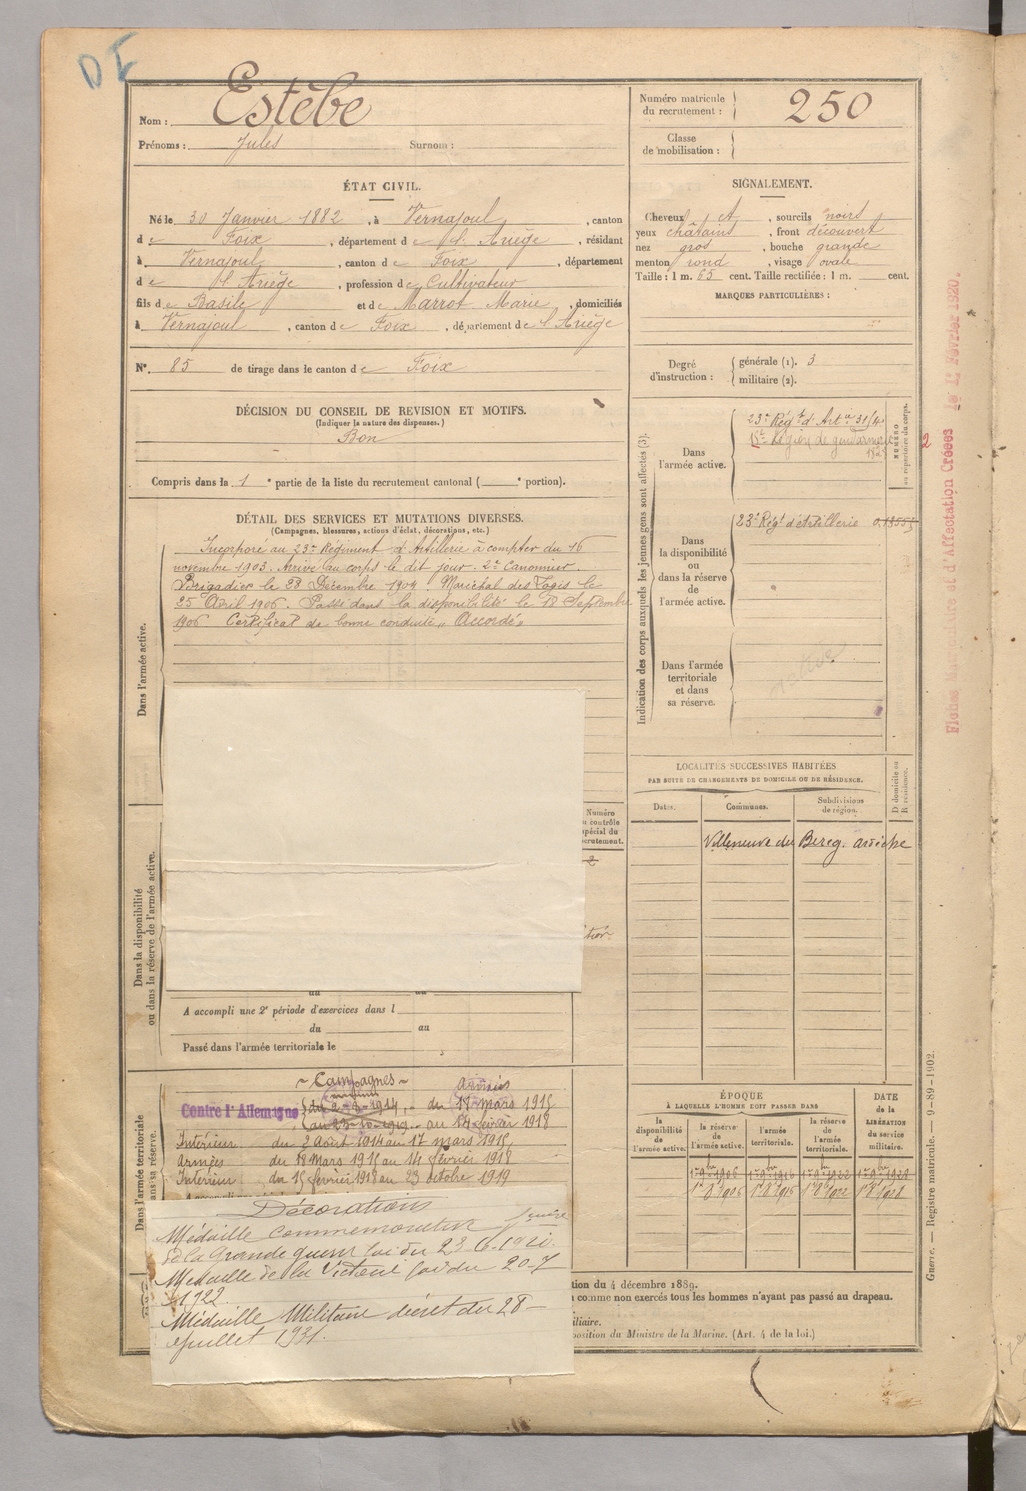 DE
Nom : Estèbe
Prénoms : Jules Surnom :
Numéro matricule du recrutement : 250
Classe de mobilisation :
ÉTAT CIVIL.
Né le 30 Janvier 1882, à Vernajoul, canton
de Foix, département de l'Ariège, résidant
à Vernajoul, canton de Foix, département
de l'Ariège, profession de Cultivateur
fils de Basile et de Marrot Marie, domiciliés
à Vernajoul, canton de Foix, département de l'Ariège
N° 85 de tirage dans le canton de Foix
SIGNALEMENT.
Cheveux, sourcils noirs
yeux châtains, front découvert
nez gros, bouche grande
menton rond, visage ovale
Taille : 1 m. 65 cent. Taille rectifiée : 1 m. cent.
MARQUES PARTICULIÈRES :
Degré d'instruction : générale (1). 3
militaire (2).
DÉCISION DU CONSEIL DE REVISION ET MOTIFS.
(Indiquer la nature des dispenses.)
Bon
Compris dans la 1e partie de la liste du recrutement cantonal ( e portion).
DÉTAIL DES SERVICES ET MUTATIONS DIVERSES.
(Campagnes, blessures, actions d'éclat, décorations, etc.)
Dans l'armée active.
Incorporé au 23e Régiment d'Artillerie à compter du 16
novembre 1903. Arrivé au corps le dit jour. 2e Canonnier.
Brigadier le 28 Décembre 1904. Maréchal des Logis le
25 Avril 1906. Passé dans la disponibilité le 18 Septembre
1906 Certificat de bonne conduite "Accordé"
Indication des corps auxquels les jeunes gens sont affectés (3).
NUMÉRO au répertoire du corps.
Dans l'armée active.
23e Régt d'Artie
15e Légion de gendarmerie
Dans la disponibilité ou dans la réserve de l'armée active.
23e Régt d'Artillerie
Dans l'armée territoriale et dans sa réserve.
Fiches Matricules et d'Affectation Créées le 1er Février 1920.
LOCALITÉS SUCCESSIVES HABITÉES
PAR SUITE DE CHANGEMENTS DE DOMICILE OU DE RÉSIDENCE.
Dates. Communes. Subdivisions de région. D domicile ou R résidence.
Villeneuve de Berg. ardèche
Dans la disponibilité ou dans la réserve de l'armée active.
Numéro
contrôle
spécial du
recrutement.
du au
A accompli une 2e période d'exercices dans l
du au
Passé dans l'armée territoriale le
Dans l'armée territoriale
~ Campagnes ~
Contre l'Allemagne
du 2-8-1914 du 18 Mars 1915
au 23-10-1919 au 14 février 1918
Intérieur du 2 Août 1914 au 17 mars 1915
Armées du 18 Mars 1915 au 14 février 1918
Intérieur du 15 février 1918 au 23 octobre 1919
Décorations
Médaille commémorative
de la Grande guerre loi du 23
Médaille de la Victoire loi du 20-7
1922
Médaille Militaire décret du 28
juillet 1931.
ÉPOQUE
À LAQUELLE L'HOMME DOIT PASSER DANS
la disponibilité de l'armée active. la réserve de l'armée active. l'armée territoriale. la réserve de l'armée territoriale.
DATE de la LIBÉRATION du service militaire.
1er 9bre 1906 1er 9bre 1916 1er 9bre 1922 1er 9bre 1928
1er 8bre 1906 1er 8bre 1916 1er 8bre 1922 1er 8bre 1928
tion du 4 décembre 1889.
comme non exercés tous les hommes n'ayant pas passé au drapeau.
position du Ministre de la Marine. (Art. 4 de la loi.)
Guerre. — Registre matricule. — 9-89-1902.